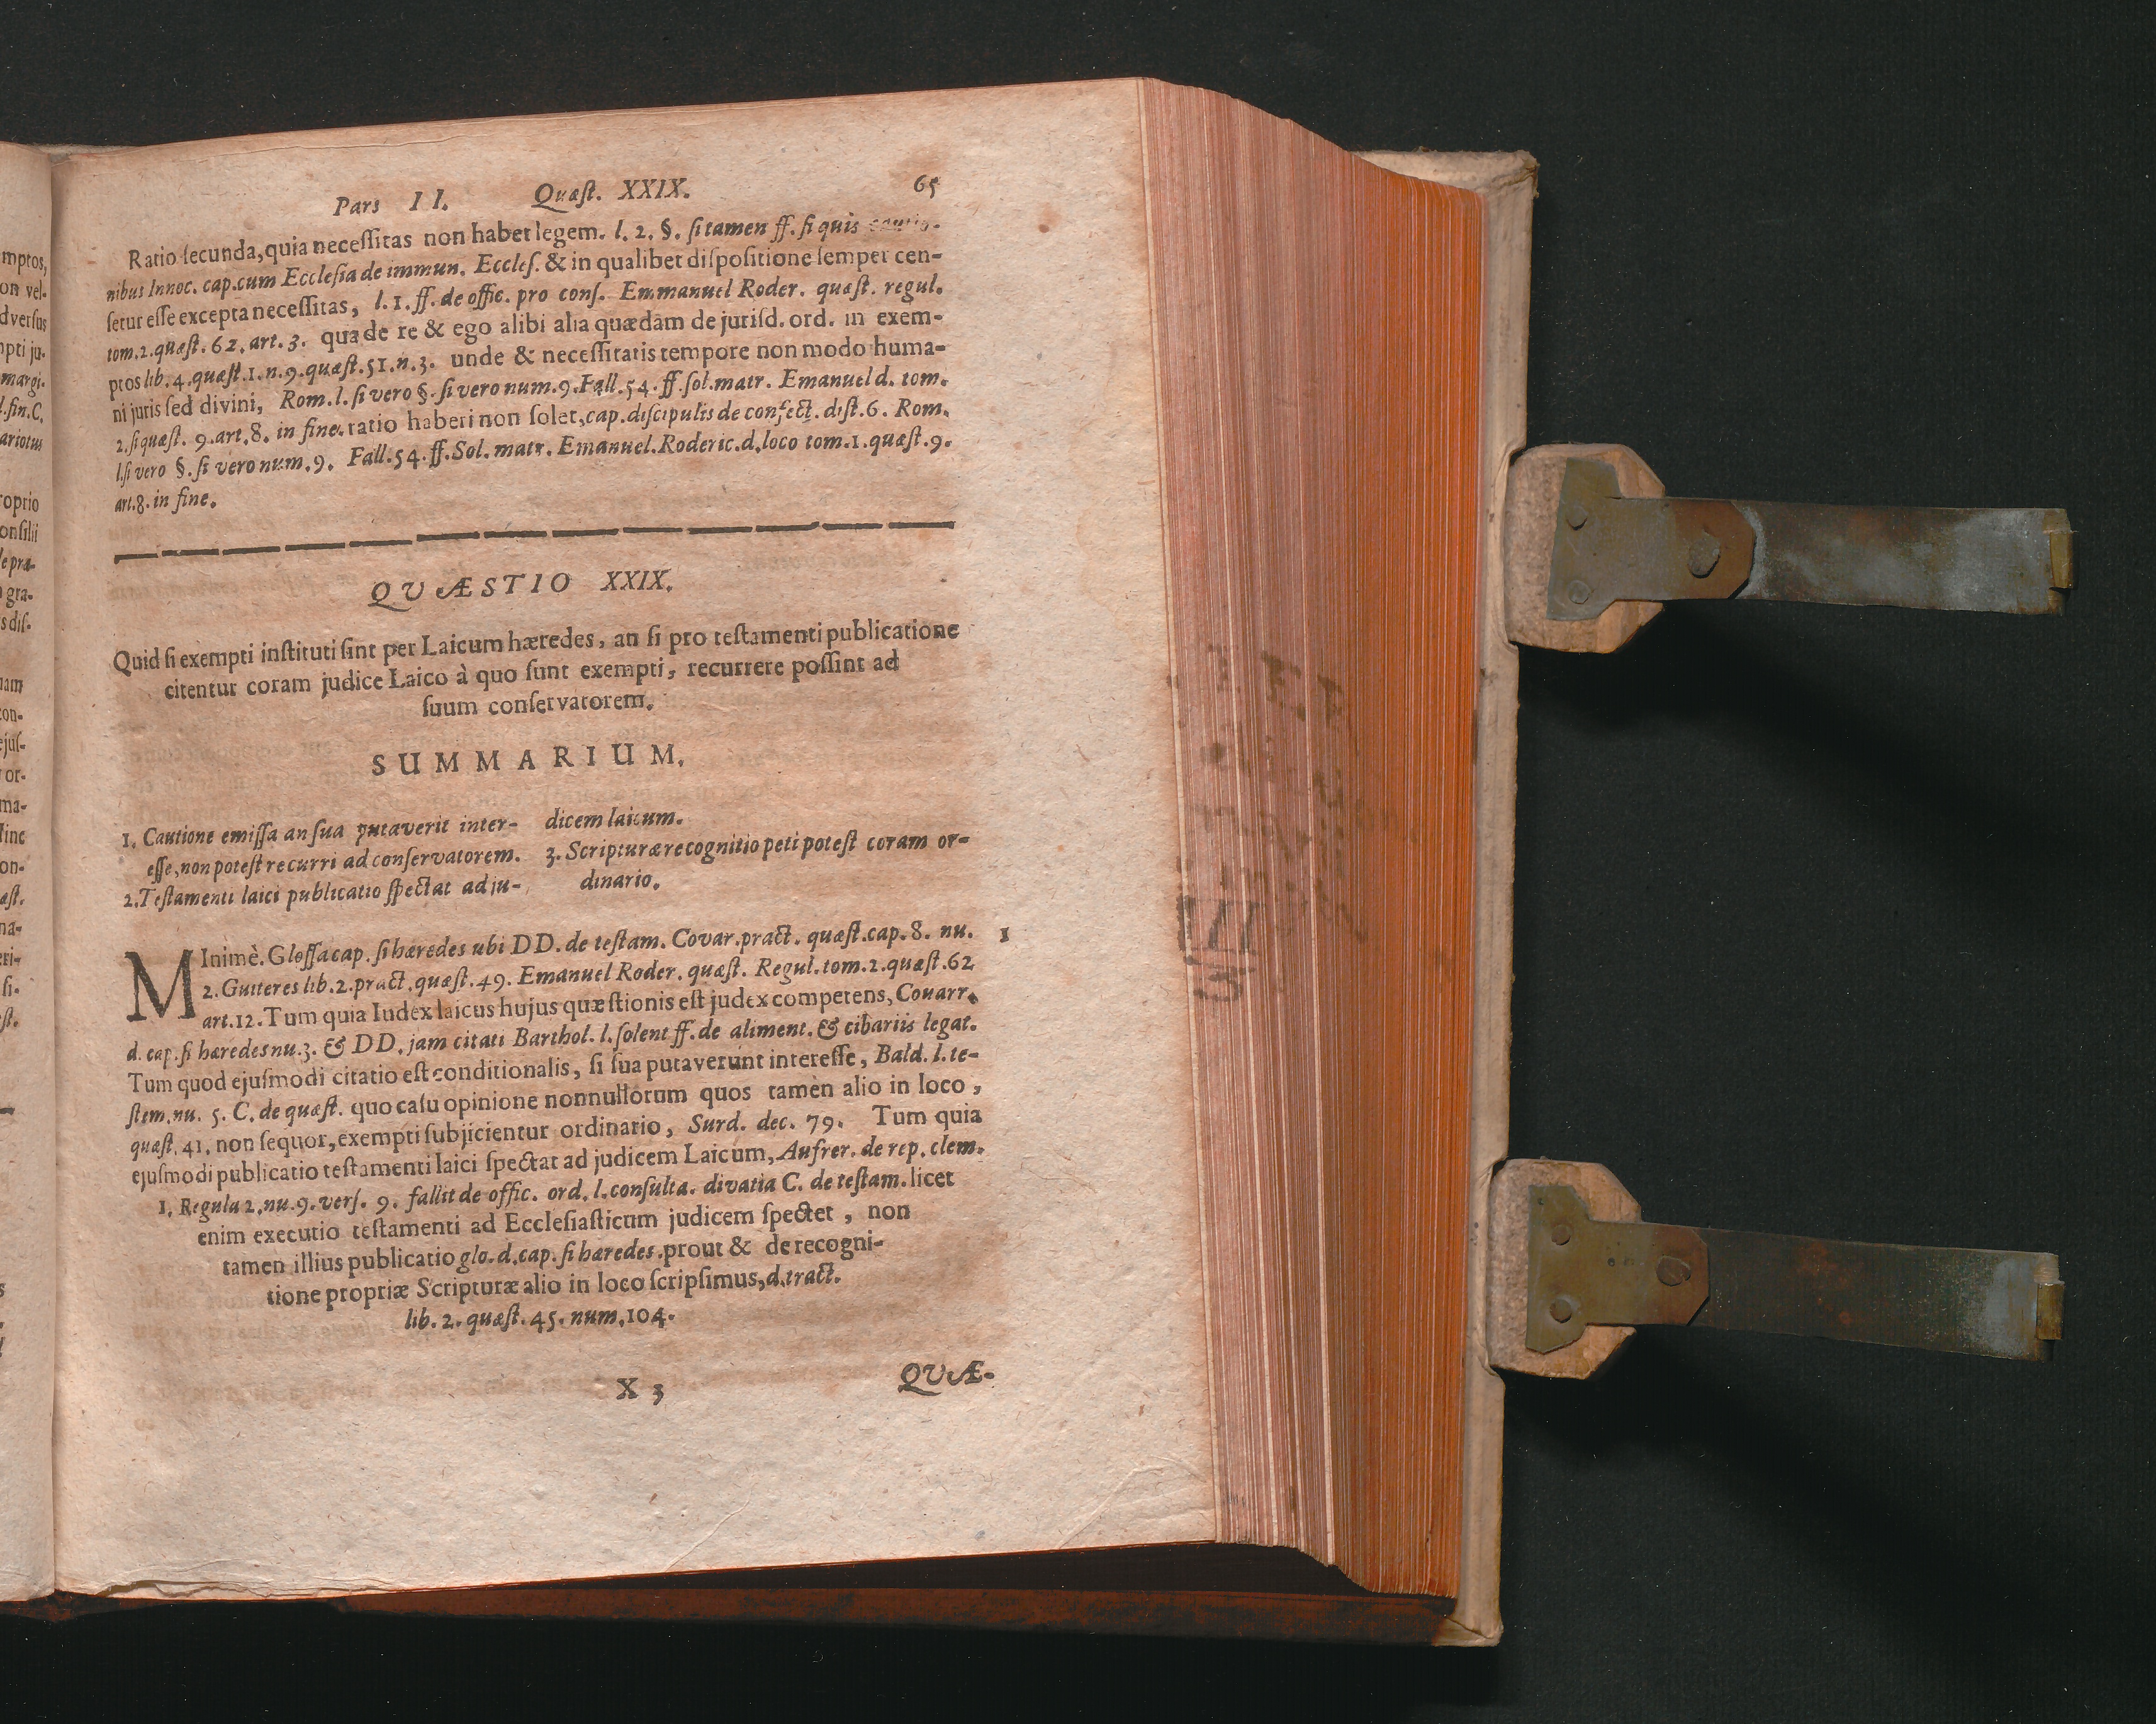 Pars II. Quæſt. XXIX. 65
Ratio ſecunda, quia neceſſitas non habet legem. l. 2. §. ſi tamen ff. ſi quis cautio-
nibus Innoc. cap. cum Eccleſia de immun. Eccleſ. & in qualibet diſpoſitione ſemper cen-
ſetur eſſe excepta neceſſitas, l. 1. ff. de offic. pro conſ. Emmanuel Roder. quæſt. regul.
tom. 2. quæſt. 62. art. 3. qua de re & ego alibi alia quædam de juriſd. ord. in exem-
ptos lib. 4. quæſt. 1. n. 9. quæſt. 51. n. 3. unde & neceſſitatis tempore non modo huma-
ni juris ſed divini, Rom. l. ſi vero §. ſi vero num. 9. Fall. 54. ff. ſol. matr. Emanuel d. tom.
2. ſi quæſt. 9. art. 8. in fine. ratio haberi non ſolet, cap. diſcipulis de conſect. diſt. 6. Rom.
l. ſi vero §. ſi vero num. 9. Fall. 54. ff. Sol. matr. Emanuel. Roderic. d. loco tom. 1. quæſt. 9.
art. 8. in fine.
QVÆSTIO XXIX.
Quid ſi exempti inſtituti ſint per Laicum hæredes, an ſi pro teſtamenti publicatione
citentur coram judice Laico à quo ſunt exempti, recurrere poſſint ad
ſuum conſervatorem.
SUMMARIUM.
1. Cautione emiſſa an ſua putaverit inter-
eſſe, non poteſt recurri ad conſervatorem.
2. Teſtamenti laici publicatio ſpectat ad ju-
dicem laicum.
3. Scripturæ recognitio peti poteſt coram or-
dinario.
MInimè. Gloſſa cap. ſi hæredes ubi DD. de teſtam. Covar. pract. quæſt. cap. 8. nu. 1
2. Gutteres lib. 2. pract. quæſt. 49. Emanuel Roder. quæſt. Regul. tom. 2. quæſt. 62
art. 12. Tum quia Iudex laicus hujus quæſtionis eſt judex competens, Couarr.
d. cap. ſi hæredes nu. 3. & DD. jam citati Barthol. l. ſolent ff. de aliment. & cibariis legat.
Tum quod ejuſmodi citatio eſt conditionalis, ſi ſua putaverunt intereſſe, Bald. l. te-
ſtem. nu. 5. C. de quæſt. quo caſu opinione nonnullorum quos tamen alio in loco,
quæſt. 41. non ſequor, exempti ſubjicientur ordinario, Surd. dec. 79. Tum quia
ejuſmodi publicatio teſtamenti laici ſpectat ad judicem Laicum, Aufrer. de rep. clem.
1. Regula 2. nu. 9. verſ. 9. fallit de offic. ord. l. conſulta. divatia C. de teſtam. licet
enim executio teſtamenti ad Eccleſiaſticum judicem ſpectet, non
tamen illius publicatio glo. d. cap. ſi hæredes. prout & de recogni-
tione propriæ Scripturæ alio in loco ſcripſimus, d. tract.
lib. 2. quæſt. 45. num. 104.
X 3 QVÆ-